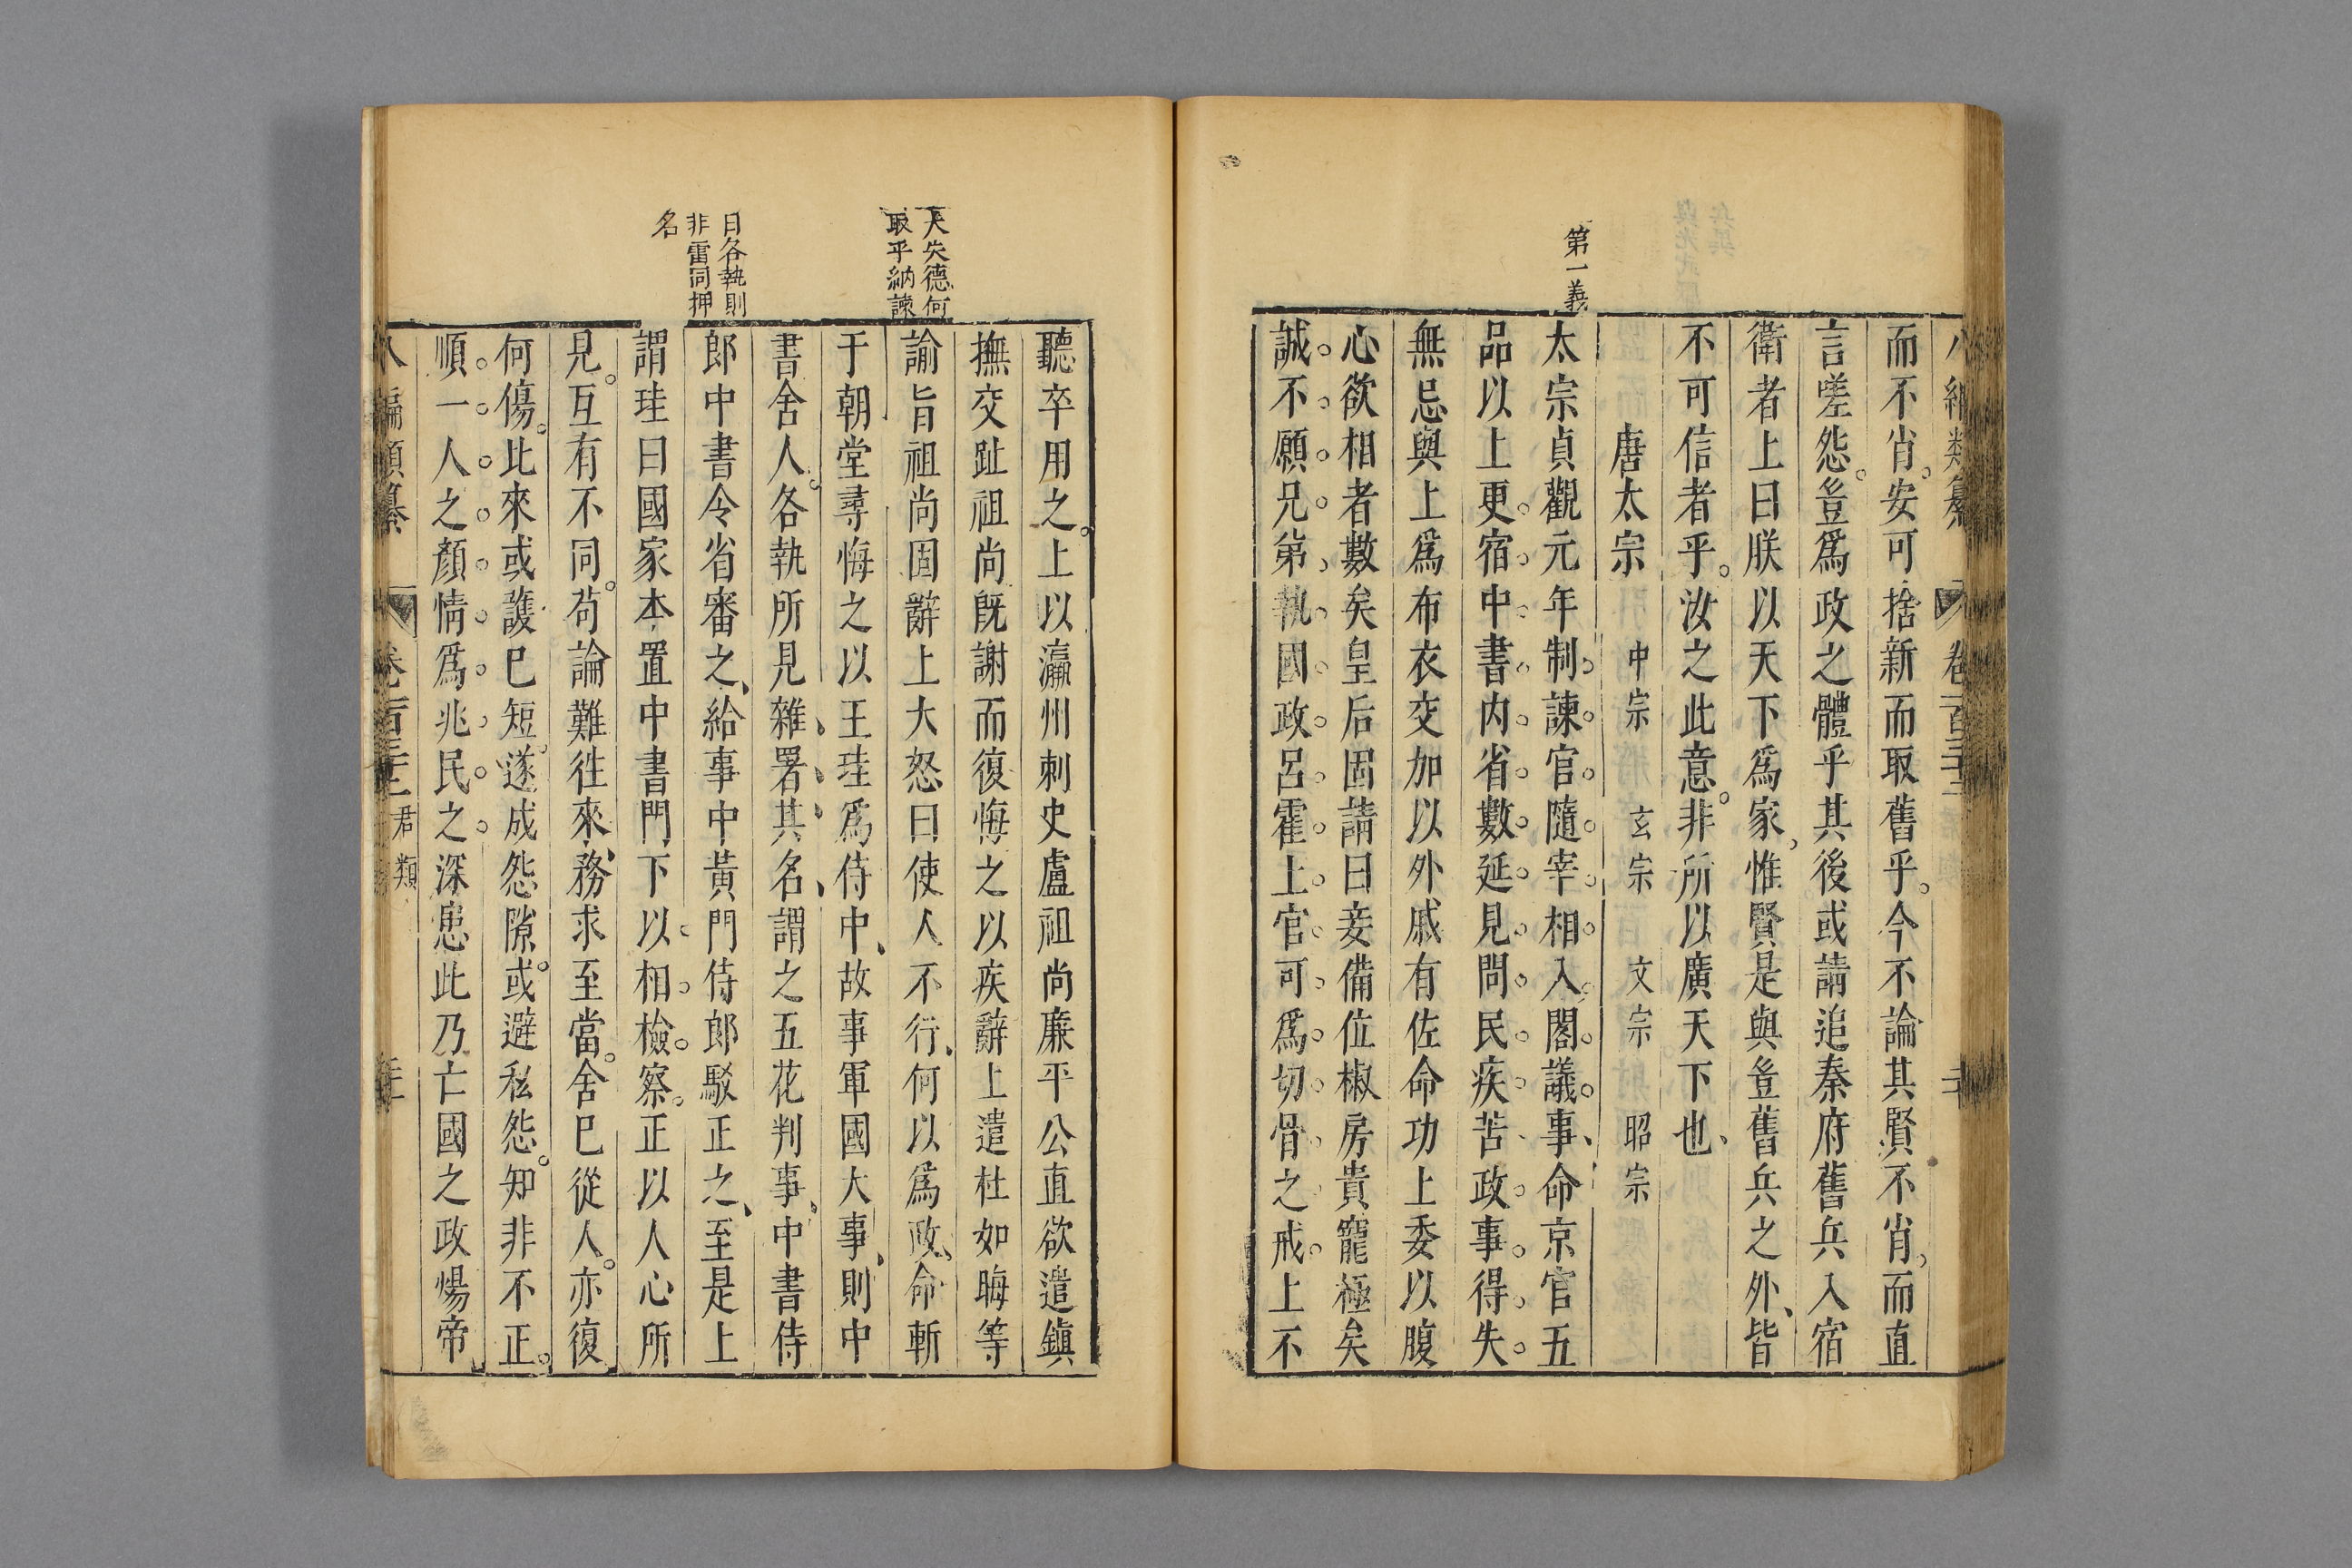 八編類纂 卷一百三十三 二十
而不肖。安可捨新而取舊乎。今不論其賢不肖、而直
言嗟怨。豈爲政之體乎其後或請追秦府舊兵入宿
衛者上曰朕以天下爲家、惟賢是與豈舊兵之外、皆
不可信者乎。汝之此意。非所以廣天下也、
唐太宗 中宗 玄宗 文宗 昭宗
第一義
太宗貞觀元年制。諫。官。隨。宰。相。入。閣。議。事、命京官五
品以上更。宿。中。書。内。省。數。延。見。問。民。疾。苦、政。事。得。失。
無忌與上爲布衣交加以外戚有佐命功上委以腹
心欲相者數矣皇后固請曰妾備位椒房貴寵極矣
誠。不。願。兄。弟、執、國。政。呂。霍。上。官。可。爲。切。骨。之。戒。上不
聽卒用之。上以瀛州刺史盧祖尚廉平公直欲遣鎮
撫交趾祖尚旣謝而復悔之以疾辭上遣杜如晦等
天失德何
取乎納諫
諭旨祖尚固辭上大怒曰使人不行、何以爲政、命斬
于朝堂尋悔之以王珪爲侍中、故事軍國大事、則中
書舍人。各執所見雜、署、其、名、謂之五花判事、中書侍
曰各執則
非雷同押
名
郎中書令省審之、給事中黃門侍郎駁正之、至是上
謂珪曰國家本置中書門下以。相。檢。察。正以人心所
見。互有不同。苟論難往來、務求至當。舍已從人。亦復
何傷。比來或護已短、遂成怨隙。或避私怨。知非不正。
順。一。人。之。顏。情。爲。兆、民。之。深患此乃亡國之政煬帝
八編類纂 卷一百三十三 君類